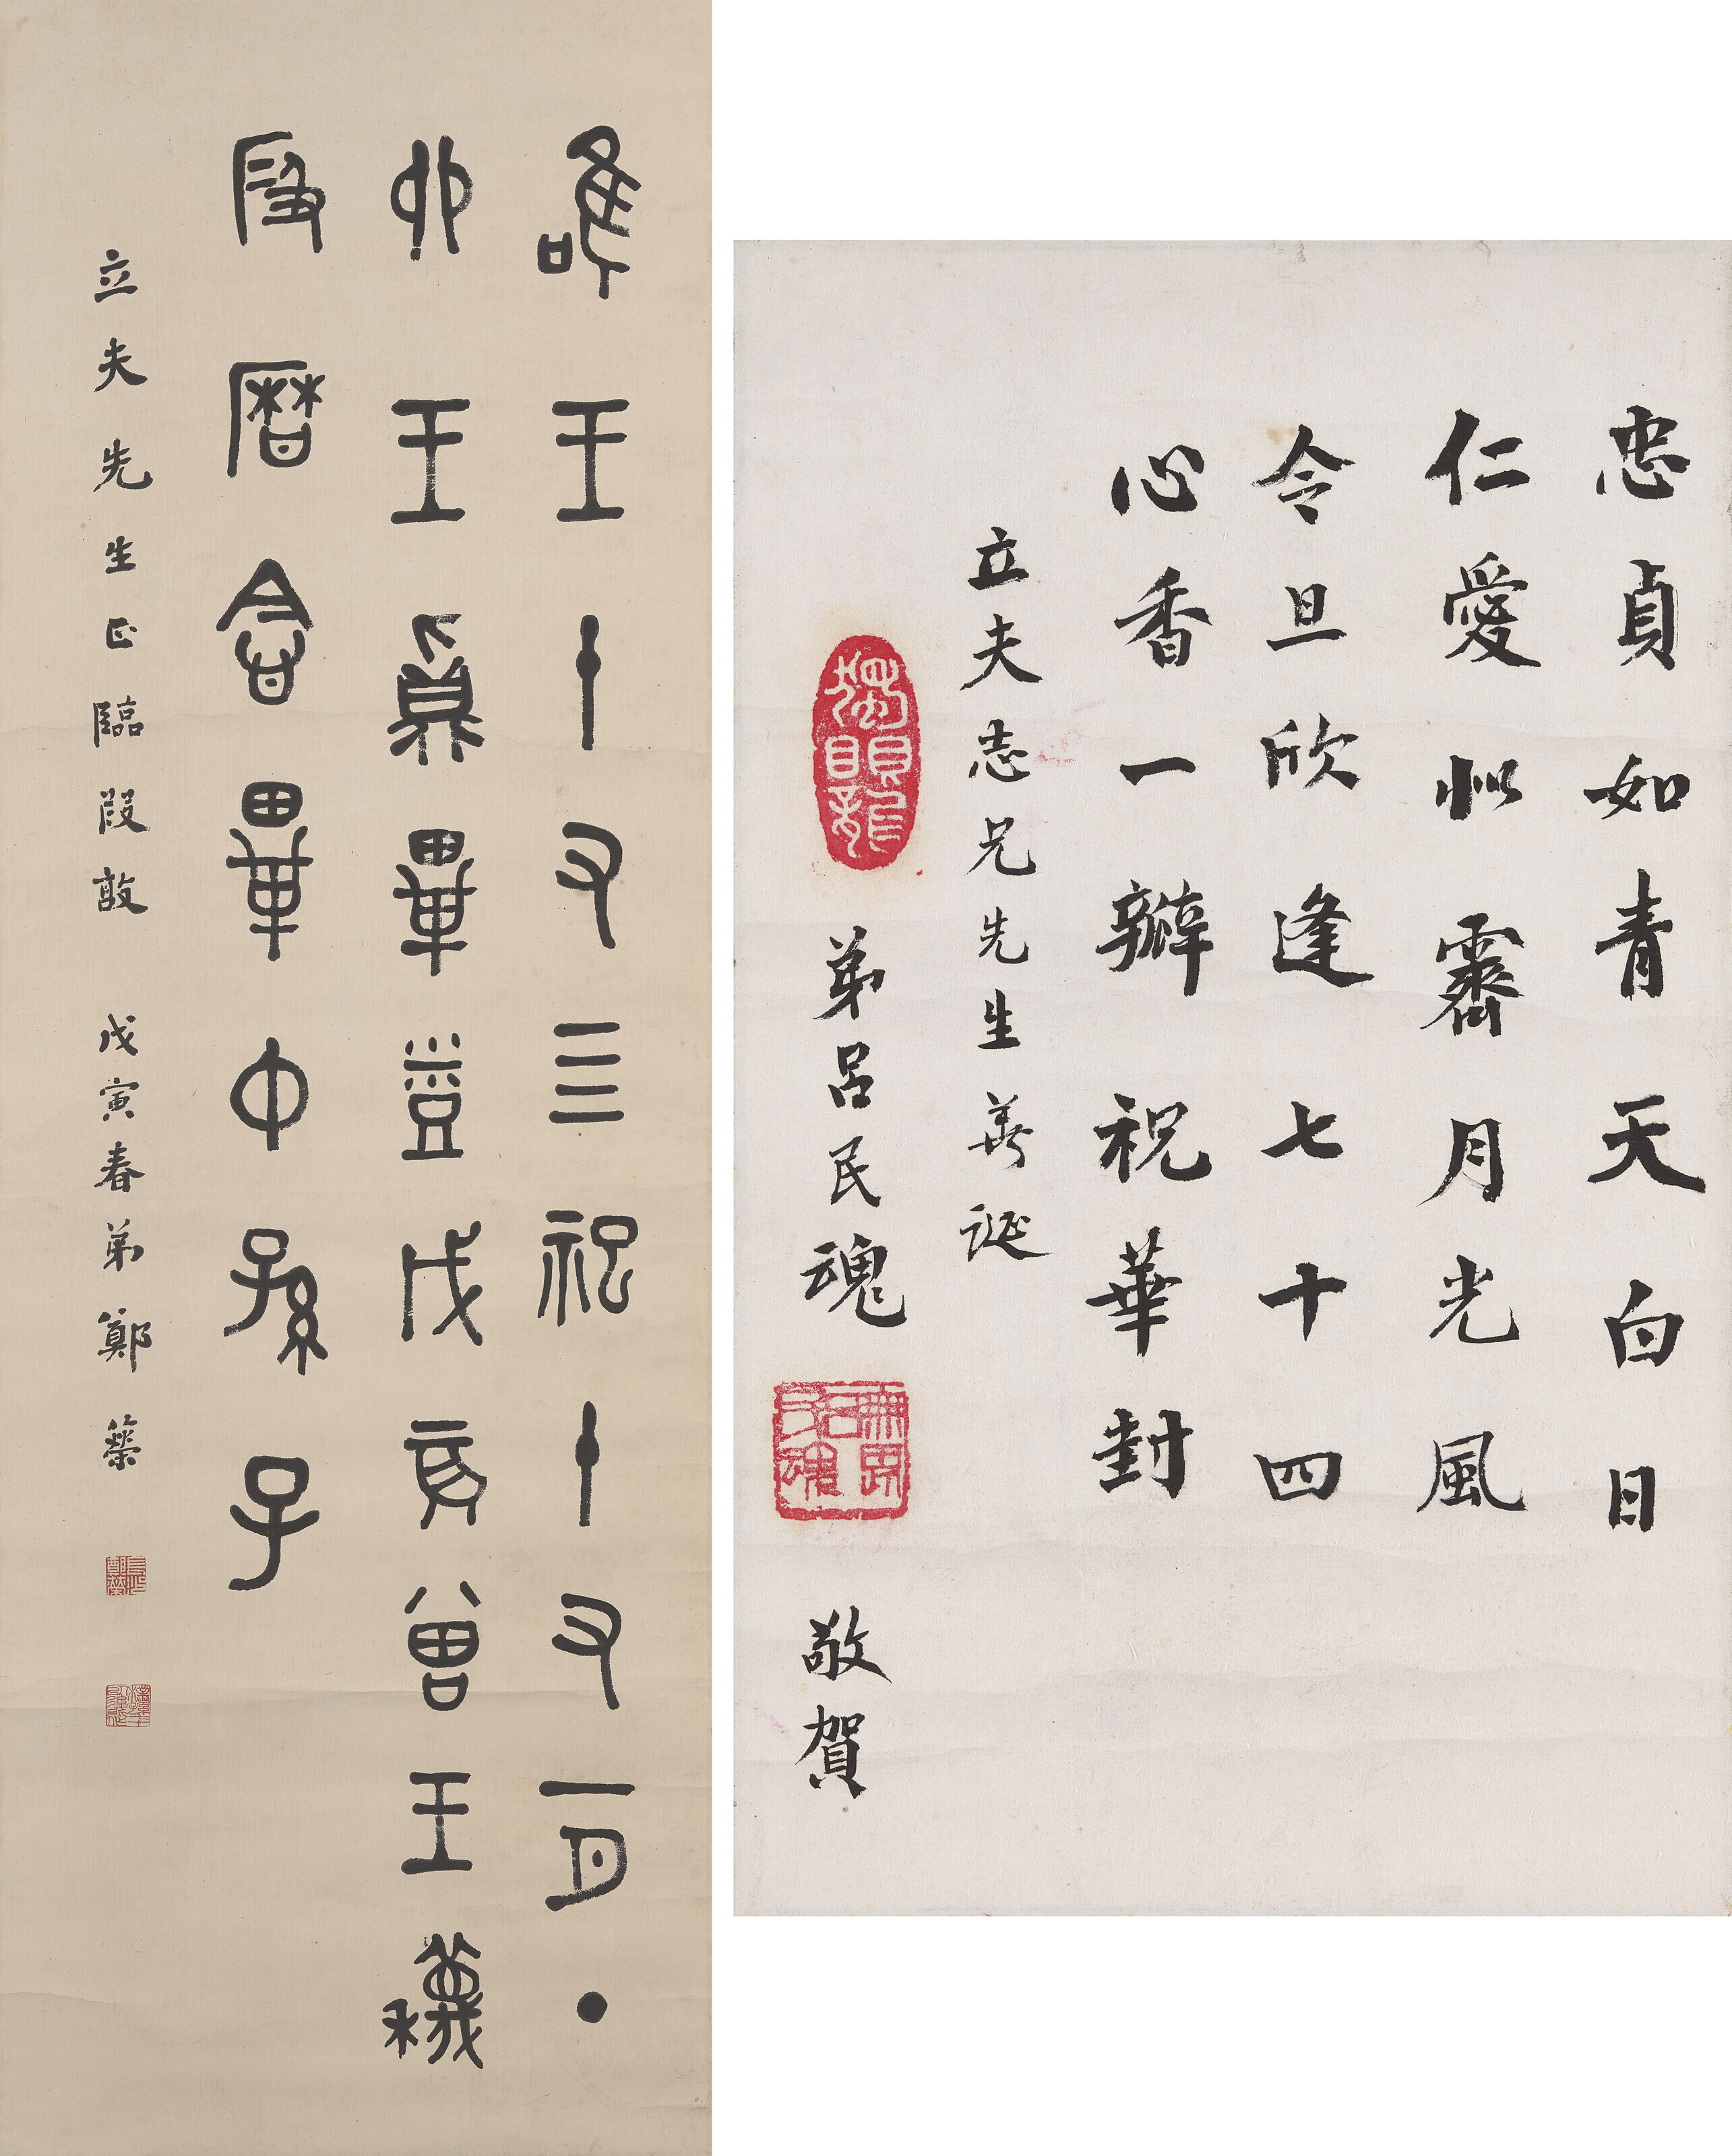 唯王十又四祀十又一月丁
卯王鼒畢登戊辰曾王蔑
段曆念畢中孫子
立夫先生正臨段敦 戊寅春弟鄭
忠貞如青天白日
仁愛似霽月光風
令旦欣逢七十四
心香一瓣祝華封
立夫志兄先生善誕
弟呂民魂 敬賀